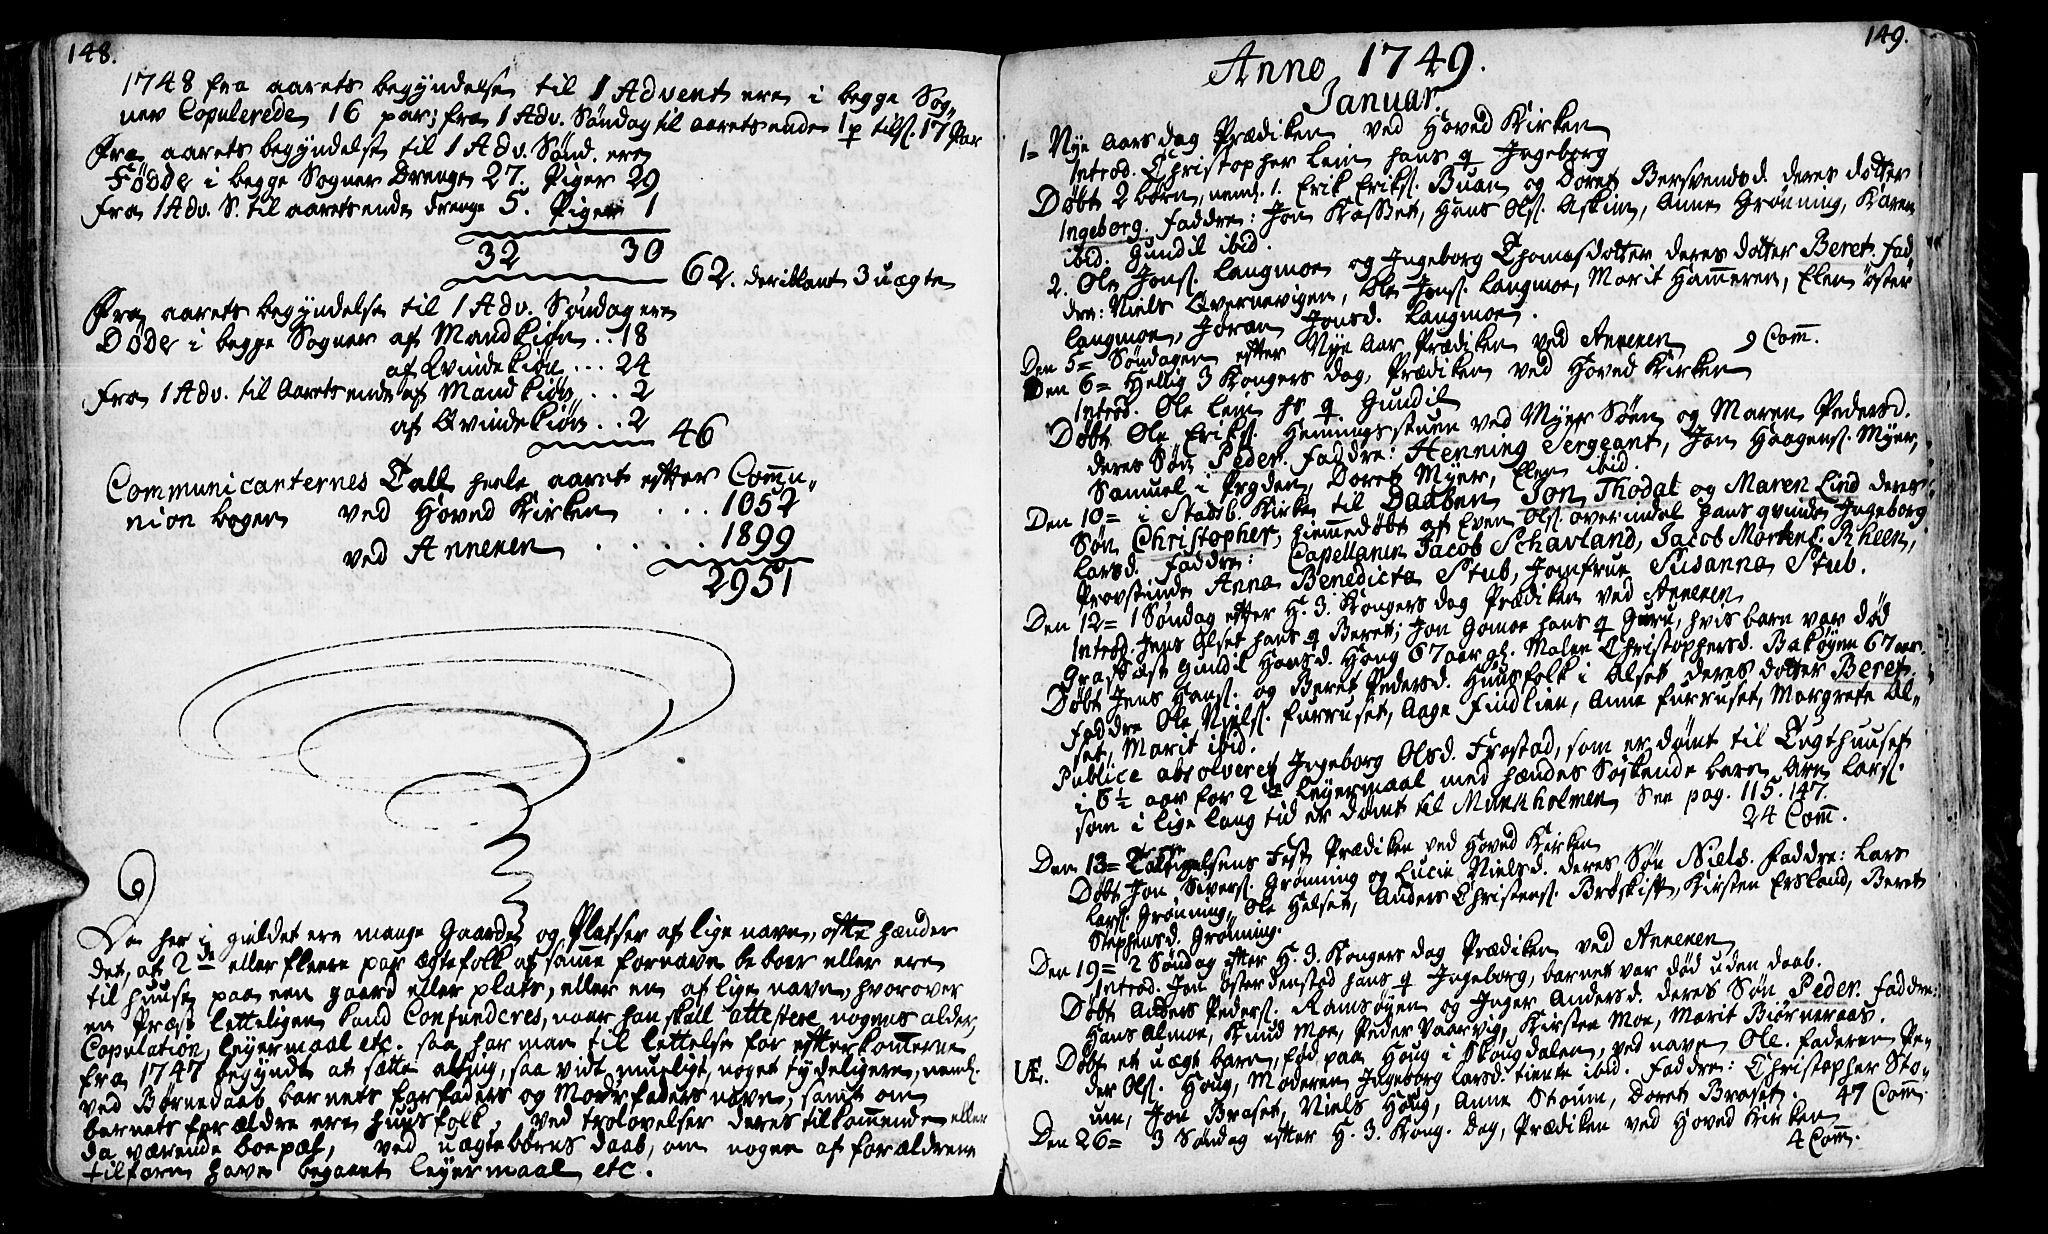 148.
1748 fra aarets begyndelse til 1 Advent ere i begge Sog„
ner Copulerede 16 par; fra 1 Adv. Søndag til aarets ende 1 p tilf. 17 Par
Fra aarets begyndelse til 1 Adv. Sønd. ere
Fødde i begge Sogner Drenge 27. Piger 29
Fra 1 Adv. S. til aarets ende drenge 5. Piger 1
32 30
62. deriblant 3 uægte
Fra aarets begyndelse til 1 Adv. Søndag ere
Døde i begge Sogner af Mandkiøn .. 18
af Qvindekiøn ... 24
Fra 1 Adv. til Aarets ende af Mandkiøn .. 2
af Qvindekiøn .. 2
46
Communicanternes Tall heele aaret efter Com̄u„
nion bogen ved Hoved Kirken . . . 1052
ved Annexen . . . . . 1899
2951
Da her i gieldet ere mange Gaarde og Platser af lige navn, ofte hænder
det, at 2de eller fleere par ægtefolk af sam̄e fornavn beboer eller ere
til huuse paa een gaard eller plats, eller en af lige navn, hvorover
en Præst letteligen kand Confunderes, naar han skall attestere nogens alder,
Copulation, leyermaal etc. saa har man til lettelse for efterkom̄erne
fra 1747 begyndt at sætte alting, saa vidt mueligt, noget tydeligere, neml.
ved Børnedaab barnets farfaders og Morfaders navne, samt om
barnets forældre ere huusfolk, ved trolovelser deres tilkom̄ende eller
da værende boepæl, ved uægte børns daab, om nogen af forældrene
tilforn have begaaet leyermaal etc.
149.
Anno 1749.
Januar.
1= Nye aars dag Prædiken ved Hoved Kirken
Introd. Christopher lein hans q Ingeborg
Døbt 2 børn, neml. 1. Erik Eriks. Buan og Doret Bersvendsd. deres dotter
Ingeborg. Faddre: Jon Kasset, Hans Ols. Askim, Anne Grønning, Karen
ibid. Gundil ibid.
2. Ole Jons. langmoe og Ingeborg Thomasdotter deres dotter Beret. Fad„
dre: Niels Overnevigen, Ole Jons. langmoe, Marit Ham̄eren, Elen øster
langmoe, Jøran Jonsd. langmoe.
Den 5= Søndagen efter Nye Aar Prædiken ved Annexen 9 Com̄.
Den 6= Hellig 3 Kongers dag, Prædiken ved Hoved Kirken
Introd. Ole lein hs q. Gundil
Døbt Ole Eriks. Hennings stuen ved Myer Søn og Maren Pedersd.
deres Søn Peder. Faddre: Henning Sergeant, Jon Haagens. Myer,
Samuel i Prgden, Doret Myer, Elen ibid.
Den 10= i Stads Kirke til Daaben Jon Thodal og Maren Lind deres
Søn Christopher, hiemmedøbt af Even Ols. overindal hans qvinde Ingeborg
Larsd. Faddre: Capellanen Jacob Schavland, Jacob Mortens. Rheen,
Provstinde Anna Benedicta Stub, Jomfrue Susanna Stub.
Den 12= 1 Søndag efter H. 3. Kongers dag Prædiken ved Annexen
Introd. Jens Alset hans q Beret; Jon Gomoe hans q Guru, hvis barn var død
Græst Gundil Hansd. Houg 67 aar gl. Malen Christophersd. Bakøyen 67 aar.
Døbt Jens Hans. og Beret Pedersd. Huusfolk i Alset deres dotter Beret.
Faddre Ole Niels. furruset, Aage Findlien, Anne furruset, Margrete Al„
set, Marit ibid.
Publice absolveret Ingeborg Olsd. Frostad, som er dømt til Tugthuuset
i 6½ aar for 2de leyermaal med hendes Søskende barn Aren Lars.
som i lige lang tid er dømt til Munkholmen See pag. 115. 147.
24 Com̄.
Den 13= Taksigelsens Fest Prædiken ved Hoved Kirken
Døbt Jon Sivers. Grønning og Lucie Nielsd. deres Søn Niels. Faddre: Lars
Lars. Grønning, Ole Helset, Anders Christens. Brøskift, Kirsten Ersland, Beret
Stephensd. Grønning.
Den 19= 2 Søndag efter H. 3. Kongers dag Prædiken ved Annexen
Introd. Jon østerdenstad hans q Ingeborg, barnet var død uden daab.
Døbt Anders Peders. Ramsøyen og Inger Andersd. deres Søn Peder. Faddre:
Hans Almoe, Knud Moe, Peder Vaarvig, Kirsten Moe, Marit Biørneraas.
Æ. Døbt et uægt barn, fød paa Houg i Skougdalen, ved navn Ole. Faderen Pe„
der Ols. Houg, Moderen Ingeborg Larsd. tiente ibid. Faddre: Christopher Sto„
un, Jon Braset, Niels Houg, Anne Stoun, Doret Braset. 47 Com̄.
Den 26= 3 Søndag efter H. 3. Kong. dag, Prædiken ved Hoved Kirken
4 Com̄.